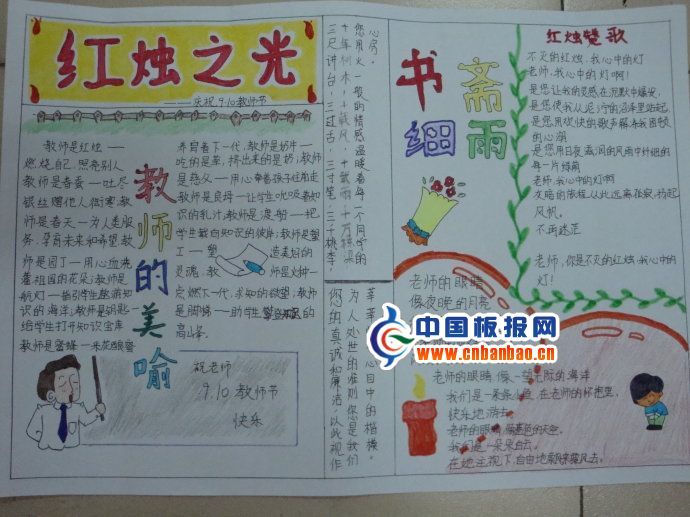 红烛之光
——庆祝9.10教师节
教师是红烛——
燃烧自己,照亮别人
教师是春蚕——吐尽
银丝赠他人御寒;教
师是春天——为人类服
务,孕育未来和希望;教
师是园丁——用心血浇
灌祖国的花朵;教师是
航灯——指引学生遨游知
识的海洋;教师是钥匙——
给学生打开知识宝库
教师是蜜蜂——采花酿蜜
养育着下一代;教师是奶牛——
吃的是草,挤出来的是奶;教师
是慈父——用心牵着孩子往前走
教师是良母——让学生吮吸着知
识的乳汁;教师是渡船——把
学生载向知识的彼岸;教师是
工——塑造美好的
灵魂;教师是火种——
点燃下一代,求知的欲望;教师
是脚梯——助学生
高斗象.
教师的美喻
祝老师
9.10教师节
快乐
心房。
您用火一般的情感温暖着每一个同学的
十年树木,十载风,十载雨,十万栋梁
三尺讲台,三寸舌,三寸笔,三千桃李。
为人处世的准则您是我们
您的真诚和廉洁以此视作
书斋细雨
红烛赞歌
不灭的红烛,我心中的灯
老师,我心中的灯啊!
是您让我的灵感在沉默中爆发,
是您使我从泥泞的沼泽里站起,
是您用欢快的歌声解冻我困顿
的心湖
是您用日夜兼程的风雨中纤细的
每一片绿荫
老师,我心中的灯啊
女贞的旅程,从此远离孤寂,扬起
风帆。
不再迷茫
老师,你是不灭的红烛,我心中的
灯!
老师的眼睛
像夜晚的月亮
中国板报网
www.cnbanbao.cn
老师的眼睛 像一望无际的海洋
我们是一条条小鱼 在老师的怀抱里,
快乐地游去。
老师的眼睛,像蓝色的天空.
我们是一朵朵白云。
在她注视下,自由地飘来飘去。